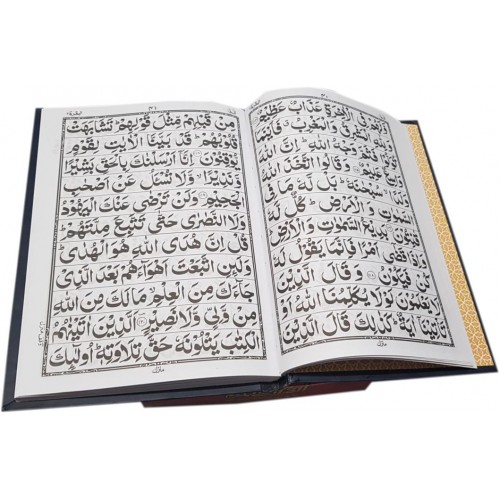 ٣٠
وَلَهُمْ فِى الْاٰخِرَةِ عَذَابٌ عَظِيْمٌ
وَلِلّٰهِ الْمَشْرِقُ وَالْمَغْرِبُ فَاَيْنَمَا
تُوَلُّوْا فَثَمَّ وَجْهُ اللّٰهِ اِنَّ اللّٰهَ
وَاسِعٌ عَلِيْمٌ وَقَالُوا اتَّخَذَ اللّٰهُ
وَلَدًا سُبْحٰنَهٗ بَلْ لَّهٗ مَا فِى
السَّمٰوٰتِ وَالْاَرْضِ ط كُلٌّ لَّهٗ
قٰنِتُوْنَ بَدِيْعُ السَّمٰوٰتِ وَالْاَرْضِ
وَاِذَا قَضٰٓى اَمْرًا فَاِنَّمَا يَقُوْلُ لَهٗ
كُنْ فَيَكُوْنُ وَقَالَ الَّذِيْنَ
لَا يَعْلَمُوْنَ لَوْلَا يُكَلِّمُنَا اللّٰهُ اَوْ
تَاْتِيْنَآ اٰيَةٌ كَذٰلِكَ قَالَ الَّذِيْنَ
منزل
٣١
مِنْ قَبْلِهِمْ مِّثْلَ قَوْلِهِمْ تَشَابَهَتْ
قُلُوْبُهُمْ قَدْ بَيَّنَّا الْاٰيٰتِ لِقَوْمٍ
يُّوْقِنُوْنَ اِنَّآ اَرْسَلْنٰكَ بِالْحَقِّ بَشِيْرًا
وَّنَذِيْرًا وَّلَا تُسْئَلُ عَنْ اَصْحٰبِ
الْجَحِيْمِ وَلَنْ تَرْضٰى عَنْكَ الْيَهُوْدُ
وَلَا النَّصٰرٰى حَتّٰى تَتَّبِعَ مِلَّتَهُمْ
قُلْ اِنَّ هُدَى اللّٰهِ هُوَ الْهُدٰى
وَلَئِنِ اتَّبَعْتَ اَهْوَآءَهُمْ بَعْدَ الَّذِىْ
جَآءَكَ مِنَ الْعِلْمِ مَا لَكَ مِنَ اللّٰهِ
مِنْ وَّلِىٍّ وَّلَا نَصِيْرٍ اَلَّذِيْنَ اٰتَيْنٰهُمُ
الْكِتٰبَ يَتْلُوْنَهٗ حَقَّ تِلَاوَتِهٖ اُولٰٓئِكَ
منزل